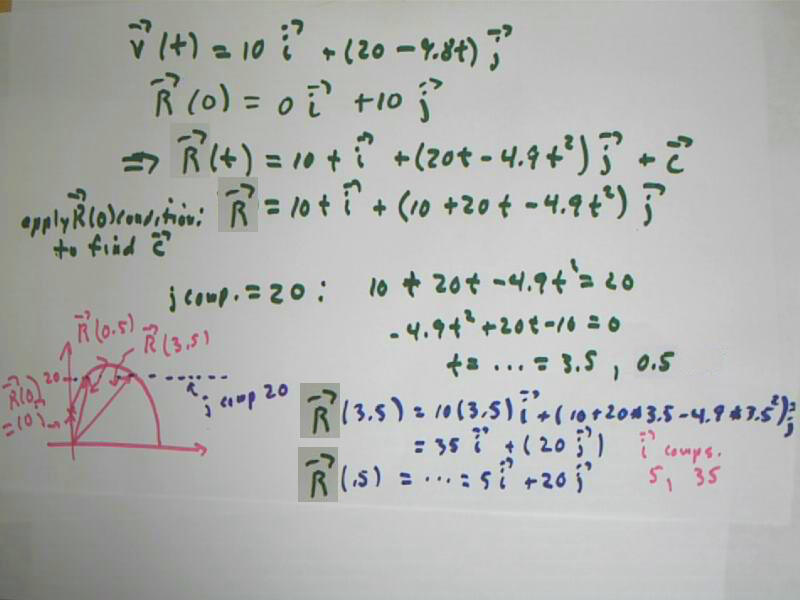 v⃗(t) = 10 i⃗ + (20 - 9.8t) j⃗
R⃗(0) = 0 i⃗ + 10 j⃗
⇒ R⃗(t) = 10 t i⃗ + (20t - 4.9t²) j⃗ + c⃗
apply R⃗(0) condition:
to find c⃗
R⃗ = 10t i⃗ + (10 + 20t - 4.9t²) j⃗
j comp. = 20 :
10 + 20t - 4.9t² = 20
-4.9t² + 20t - 10 = 0
t = ... = 3.5 , 0.5
R⃗(0.5)
R⃗(3.5)
R⃗(0)
= 10 j⃗
20
j comp 20
R⃗(3.5) = 10(3.5) i⃗ + (10 + 20*3.5 - 4.9*3.5²) j⃗
= 35 i⃗ + (20 j⃗)
R⃗(.5) = ... = 5 i⃗ + 20 j⃗
i⃗ comps.
5, 35